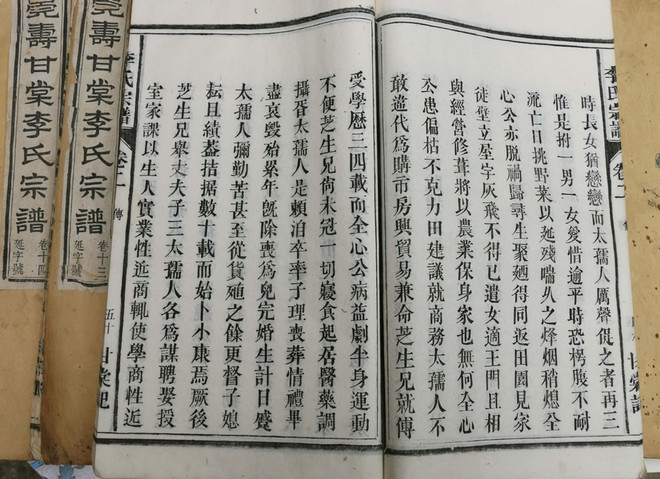 李氏宗譜
卷二
時長女猶戀戀而太孺人厲聲促之者再三
惟是拊一男一女愛惜逾平時恐枵腹不耐
流亡日挑野菜以延殘喘乆之烽烟稍熄全
心公亦脫禍歸尋生聚廼得同返田園見家
徒壁立星字灰飛不得已遣女適王門且相
與經營修葺將以農業保身家也無何全心
公患偏枯不克力田建議就商務太孺人不
敢違代為購市房興貿易兼命芝生兄就傅
受學歷三四載而全心公病益劇半身運動
不便芝生兄尙未冠一切寢食起居醫藥調
攝胥太孺人是賴泊卒率子理喪葬情禮畢
盡哀毀始累年旣除喪為兒完婚生計日蹙
太孺人彌勤苦甚至從貨殖之餘更督子媳
耘且績蓋拮据數十載而始卜小康焉厥後
芝生兄舉丈夫子三太孺人各為謀聘娶授
室家課以生人實業性近商輒使學商性近
李氏宗譜
卷二
傳
五十
甘棠記
壽甘棠李氏宗譜
卷十三
延字號
壽甘棠李氏宗譜
卷十四
延字號